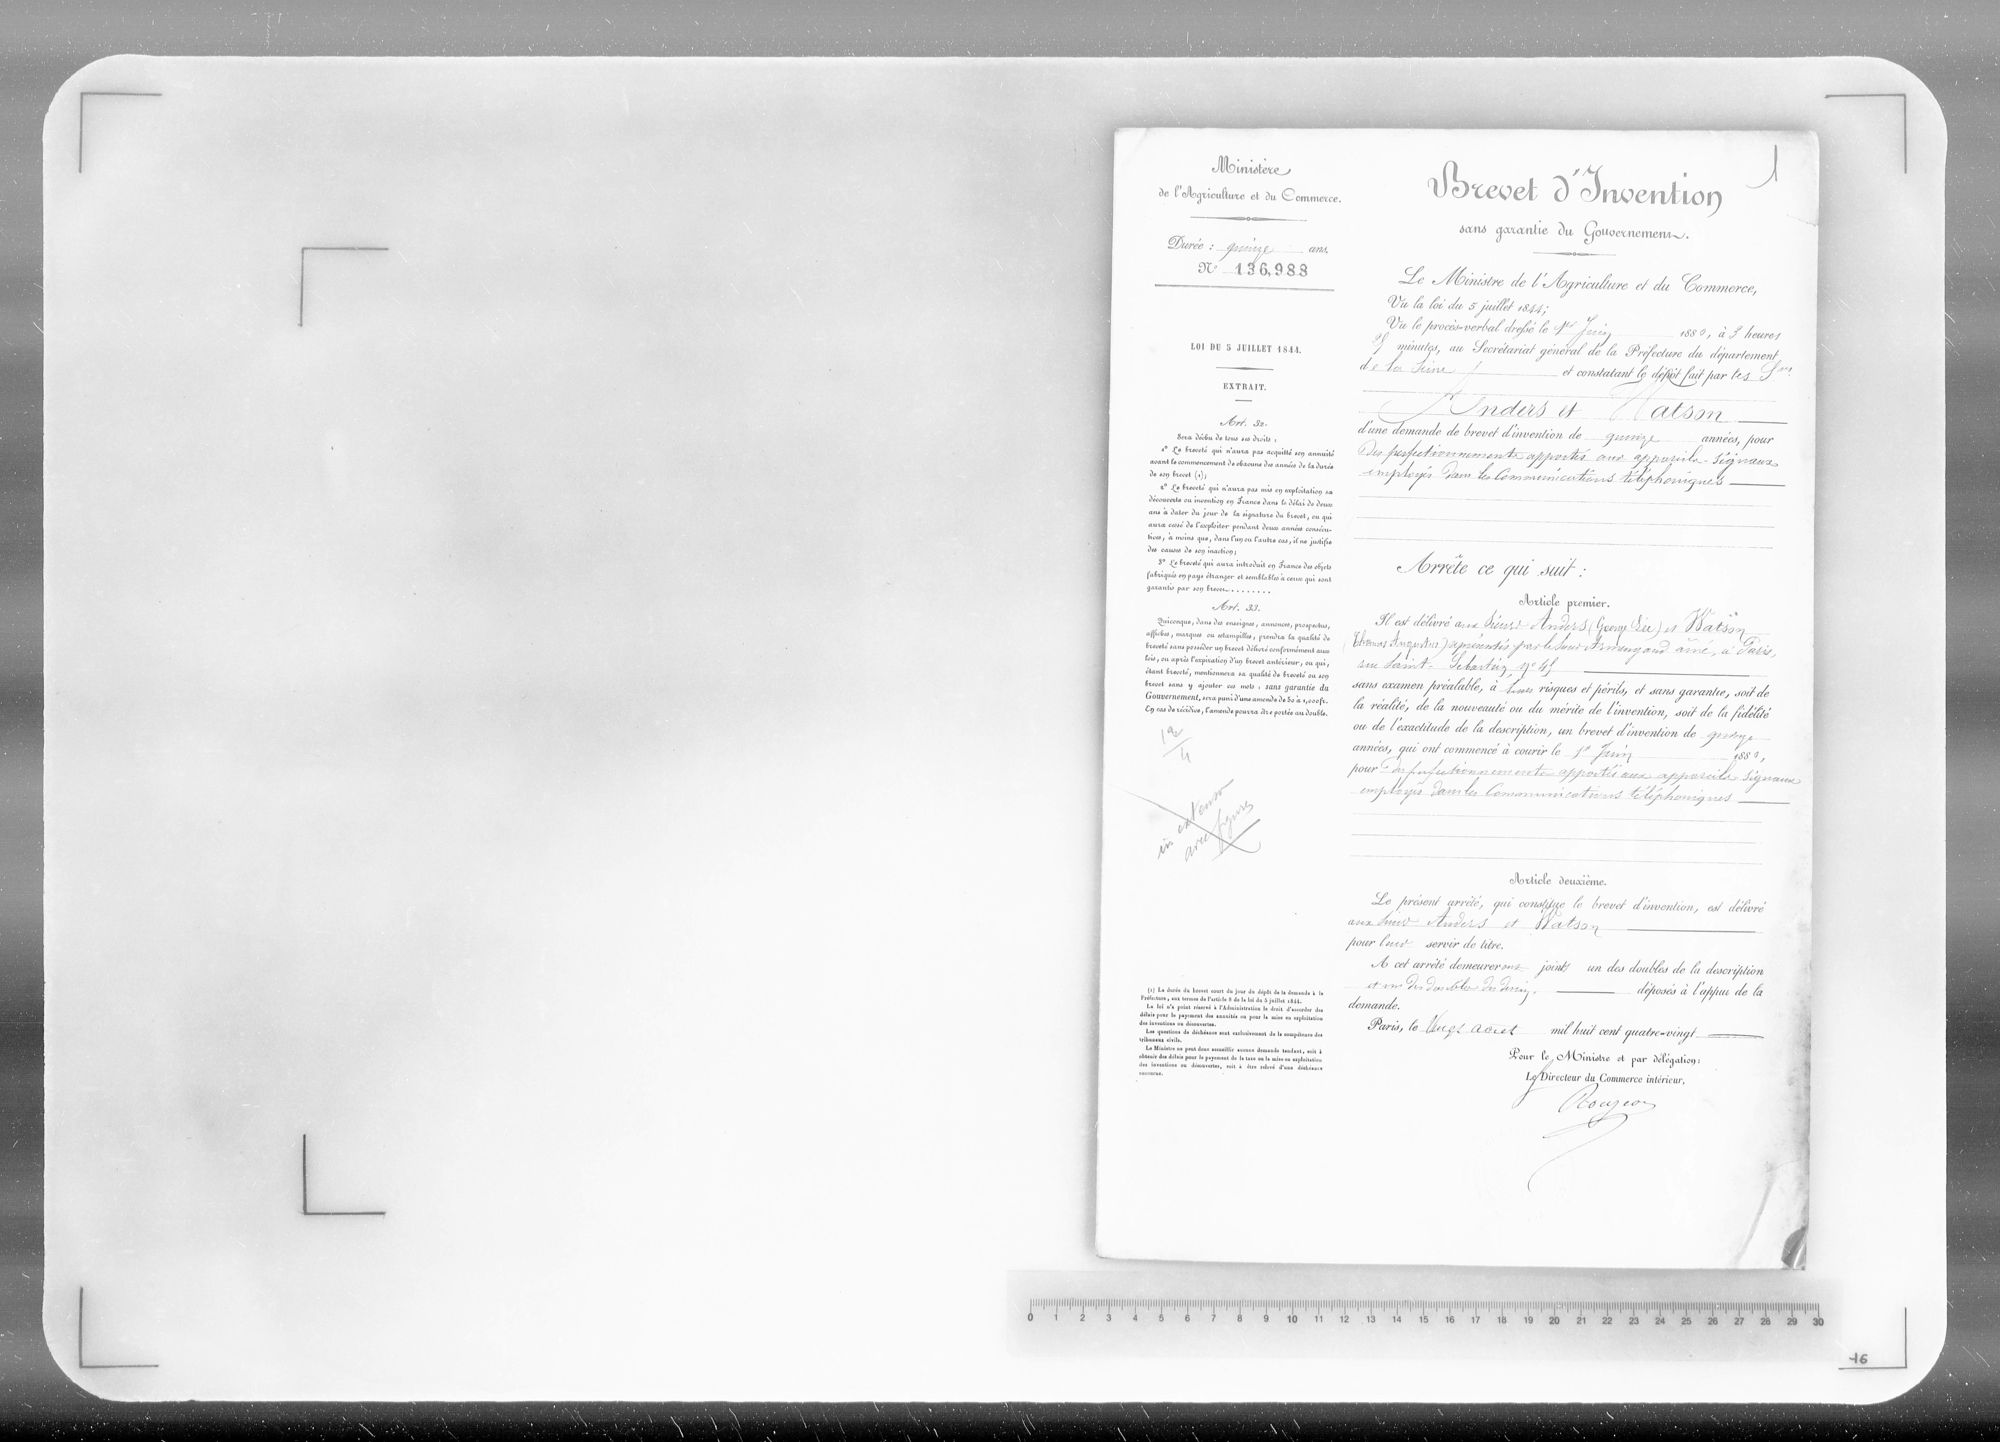 Ministère
de l'Agriculture et du Commerce.
Durée : quinze ans.
N° 136,988
LOI DU 5 JUILLET 1844.
EXTRAIT.
Art. 32.
Sera déchu de tous ses droits :
1° Le breveté qui n'aura pas acquitté son annuité
avant le commencement de chacune des années de la durée
de son brevet (1);
2° Le breveté qui n'aura pas mis en exploitation sa
découverte ou invention en France dans le délai de deux
ans à dater du jour de la signature du brevet, ou qui
aura cessé de l'exploiter pendant deux années consécu-
tives, à moins que, dans l'un ou l'autre cas, il ne justifie
des causes de son inaction;
3° Le breveté qui aura introduit en France des objets
fabriqués en pays étranger et semblables à ceux qui sont
garantis par son brevet.........
Art. 33.
Quiconque, dans des enseignes, annonces, prospectus,
affiches, marques ou estampilles, prendra la qualité de
breveté sans posséder un brevet délivré conformément aux
lois, ou après l'expiration d'un brevet antérieur, ou qui,
étant breveté, mentionnera sa qualité de breveté ou son
brevet sans y ajouter ces mots : sans garantie du
Gouvernement, sera puni d'une amende de 50 à 1,000 fr.
En cas de récidive, l'amende pourra être portée au double.
in extenso
avec figures
(1) La durée du brevet court du jour du dépôt de la demande à la
Préfecture, aux termes de l'article 8 de la loi du 5 juillet 1844.
La loi n'a point réservé à l'Administration le droit d'accorder des
délais pour le payement des annuités ou pour la mise en exploitation
des inventions ou découvertes.
Les questions de déchéance sont exclusivement de la compétence des
tribunaux civils.
Le Ministre ne peut donc accueillir aucune demande tendant, soit à
obtenir des délais pour le payement de la taxe ou la mise en exploitation
des inventions ou découvertes, soit à être relevé d'une déchéance
encourue.
1
Brevet d'Invention
sans garantie du Gouvernement.
Le Ministre de l'Agriculture et du Commerce,
Vu la loi du 5 juillet 1844;
Vu le procès-verbal dressé le 1er Juin 1880, à 3 heures
minutes, au Secrétariat général de la Préfecture du département
de la Seine et constatant le dépôt fait par les Srs
Anders et Watson
d'une demande de brevet d'invention de quinze années, pour
des perfectionnements apportés aux appareils-signaux
employés dans les communications téléphoniques
Arrête ce qui suit :
Article premier.
Il est délivré aux Sieurs Anders (George Lee) et Watson
(Thomas Augustus) représentés par le Sieur Armengaud aîné, à Paris,
rue Saint-Sébastien, n° 45
sans examen préalable, à leurs risques et périls, et sans garantie, soit de
la réalité, de la nouveauté ou du mérite de l'invention, soit de la fidélité
ou de l'exactitude de la description, un brevet d'invention de quinze
années, qui ont commencé à courir le 1er Juin 1880,
pour des perfectionnements apportés aux appareils-signaux
employés dans les communications téléphoniques
Article deuxième.
Le présent arrêté, qui constitue le brevet d'invention, est délivré
aux Sieurs Anders et Watson
pour leur servir de titre.
A cet arrêté demeureront joints un des doubles de la description
et un des doubles du dessin. déposés à l'appui de la
demande.
Paris, le vingt août mil huit cent quatre-vingt
Pour le Ministre et par délégation:
Le Directeur du Commerce intérieur,
0 1 2 3 4 5 6 7 8 9 10 11 12 13 14 15 16 17 18 19 20 21 22 23 24 25 26 27 28 29 30
16